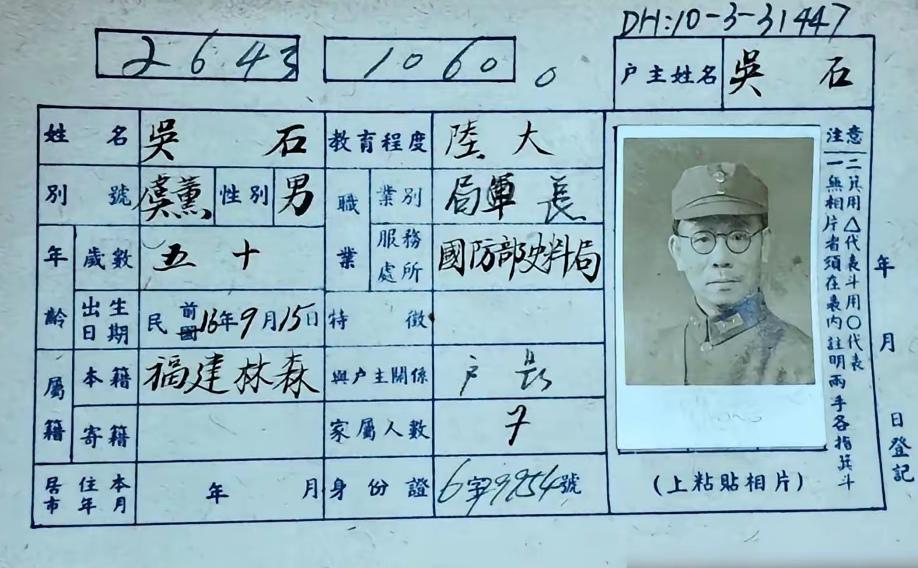 DH:10-3-31447
2643
1060
戶主姓名 吳石
姓名 吳石 教育程度 陸大
別號 虞薰 性別 男 職業 業別 局軍長
年齡 歲數 五十 服務處所 國防部史料局
出生日期 民前國16年9月15日 特徵
屬籍 本籍 福建林森 與戶主關係 戶長
寄籍 家屬人數 7
居住本市年月 年 月 身份證 6字9954號
(上粘貼相片)
注意
一無相片者須在表內註明兩手各指箕斗
二箕用△代表斗用○代表
年 月 日登記